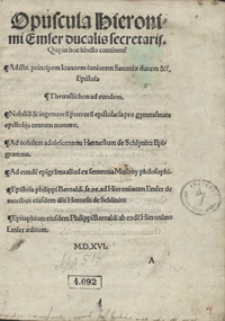 Opuscula Hieroni-
mi Emser ducalis secretarij.
Que in hoc libello continent̃
¶ Ad illu. principem Ioannem iuniorem Saxoniæ ducem &c̃.
Epistola
Thetrastichon ad eundem.
¶ Nobiliũ & ingenuorũ puerorũ epistolaria pro gymnasmata
epistolijs centum numero.
¶ Ad nobilem adolescentem Hernestum de Schlynitz Epi-
gramma.
¶ Ad eundẽ epigrãma aliud ex sententia Musony philosophi.
¶ Epistola philippi Beroaldi, ad Hieronimum Emser de
moribus eiusdem dñi Hernesti de Schlinitz
¶ Epitaphium eiusdem Philippi Beroaldi ab eodẽ Hieronimo
Emser æditum.
M.D.XVI.
A
4.092